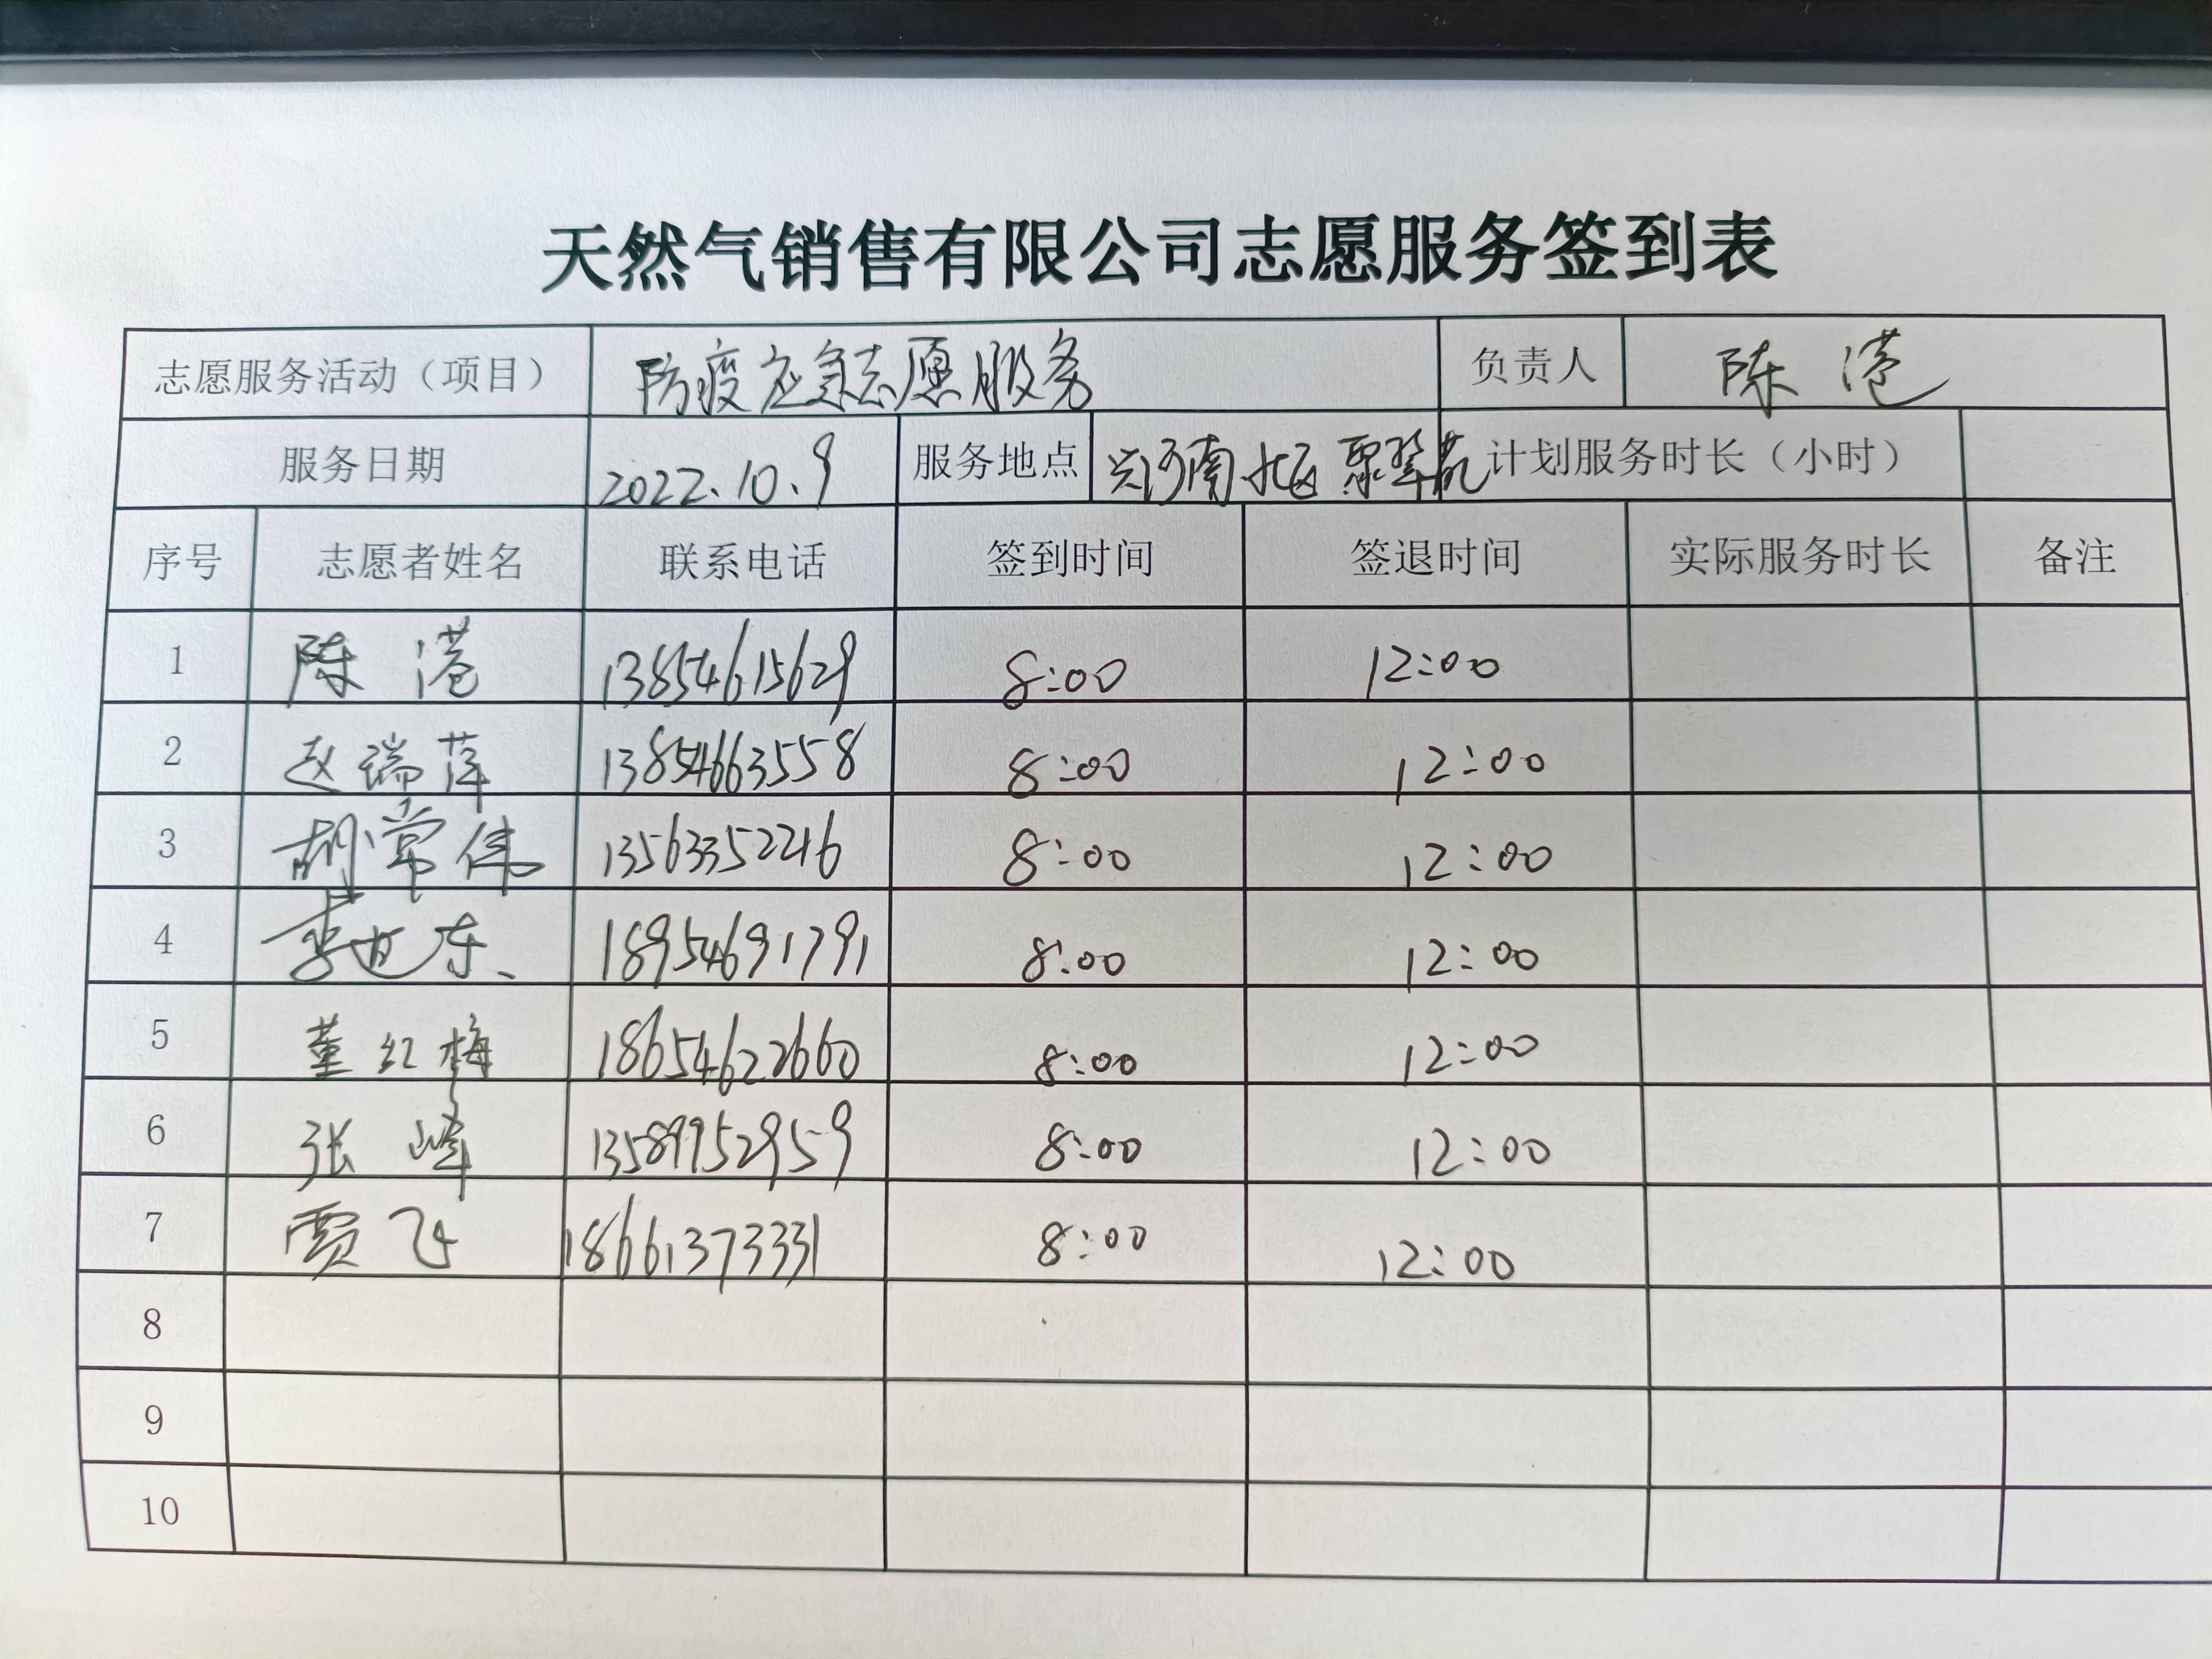 天然气销售有限公司志愿服务签到表
志愿服务活动（项目） 防疫应急志愿服务 负责人 陈港
服务日期 2022.10.9 服务地点 兴河南北区 聚翠苑 计划服务时长（小时）
序号 志愿者姓名 联系电话 签到时间 签退时间 实际服务时长 备注
1 陈港 13854615629 8:00 12:00
2 赵瑞萍 13854663558 8:00 12:00
3 胡常伟 13563352246 8:00 12:00
4 李世东 18954691791 8:00 12:00
5 董红梅 18654622660 8:00 12:00
6 张峰 13589952959 8:00 12:00
7 贾飞 18661373331 8:00 12:00
8
9
10